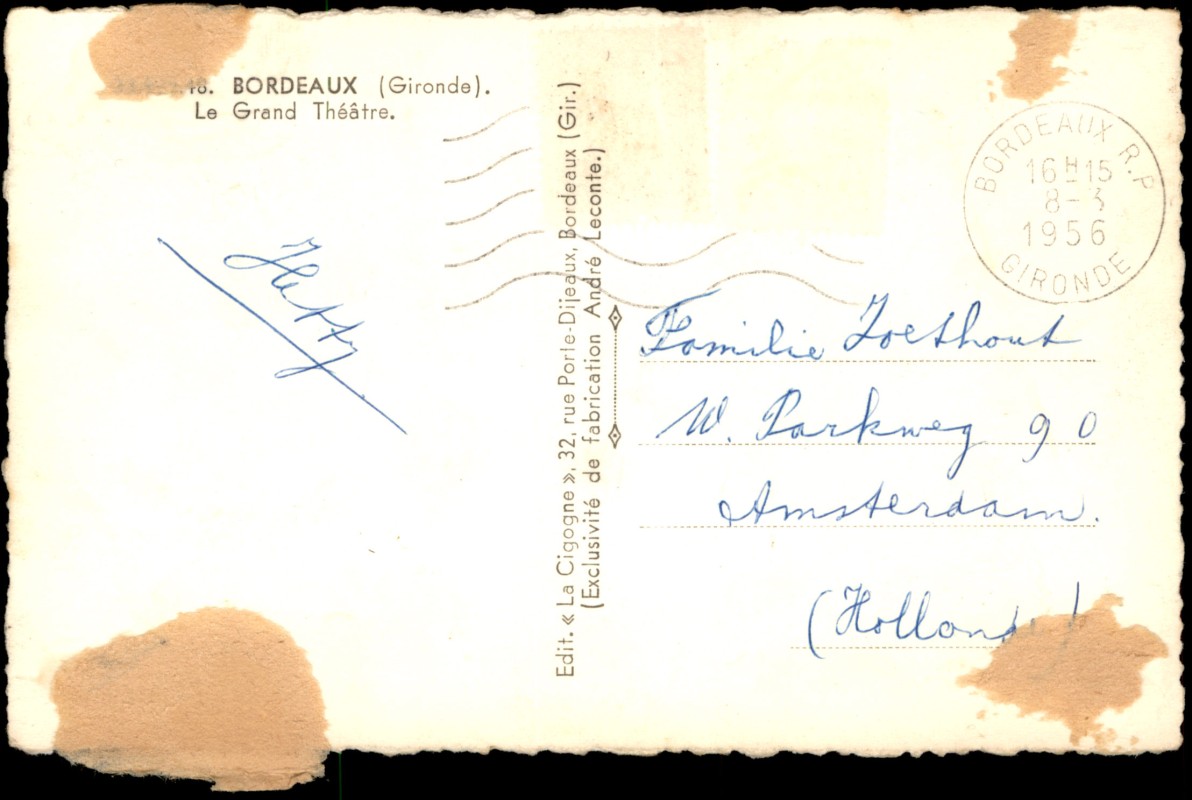 18. BORDEAUX (Gironde).
Le Grand Théâtre.
Hetty
Edit. « La Cigogne », 32, rue Porte-Dijeaux, Bordeaux (Gir.)
(Exclusivité de fabrication André Leconte.)
BORDEAUX R.P
16H15
8-3
1956
GIRONDE
Familie Zoethout
W. Parkweg 90
Amsterdam.
(Holland)